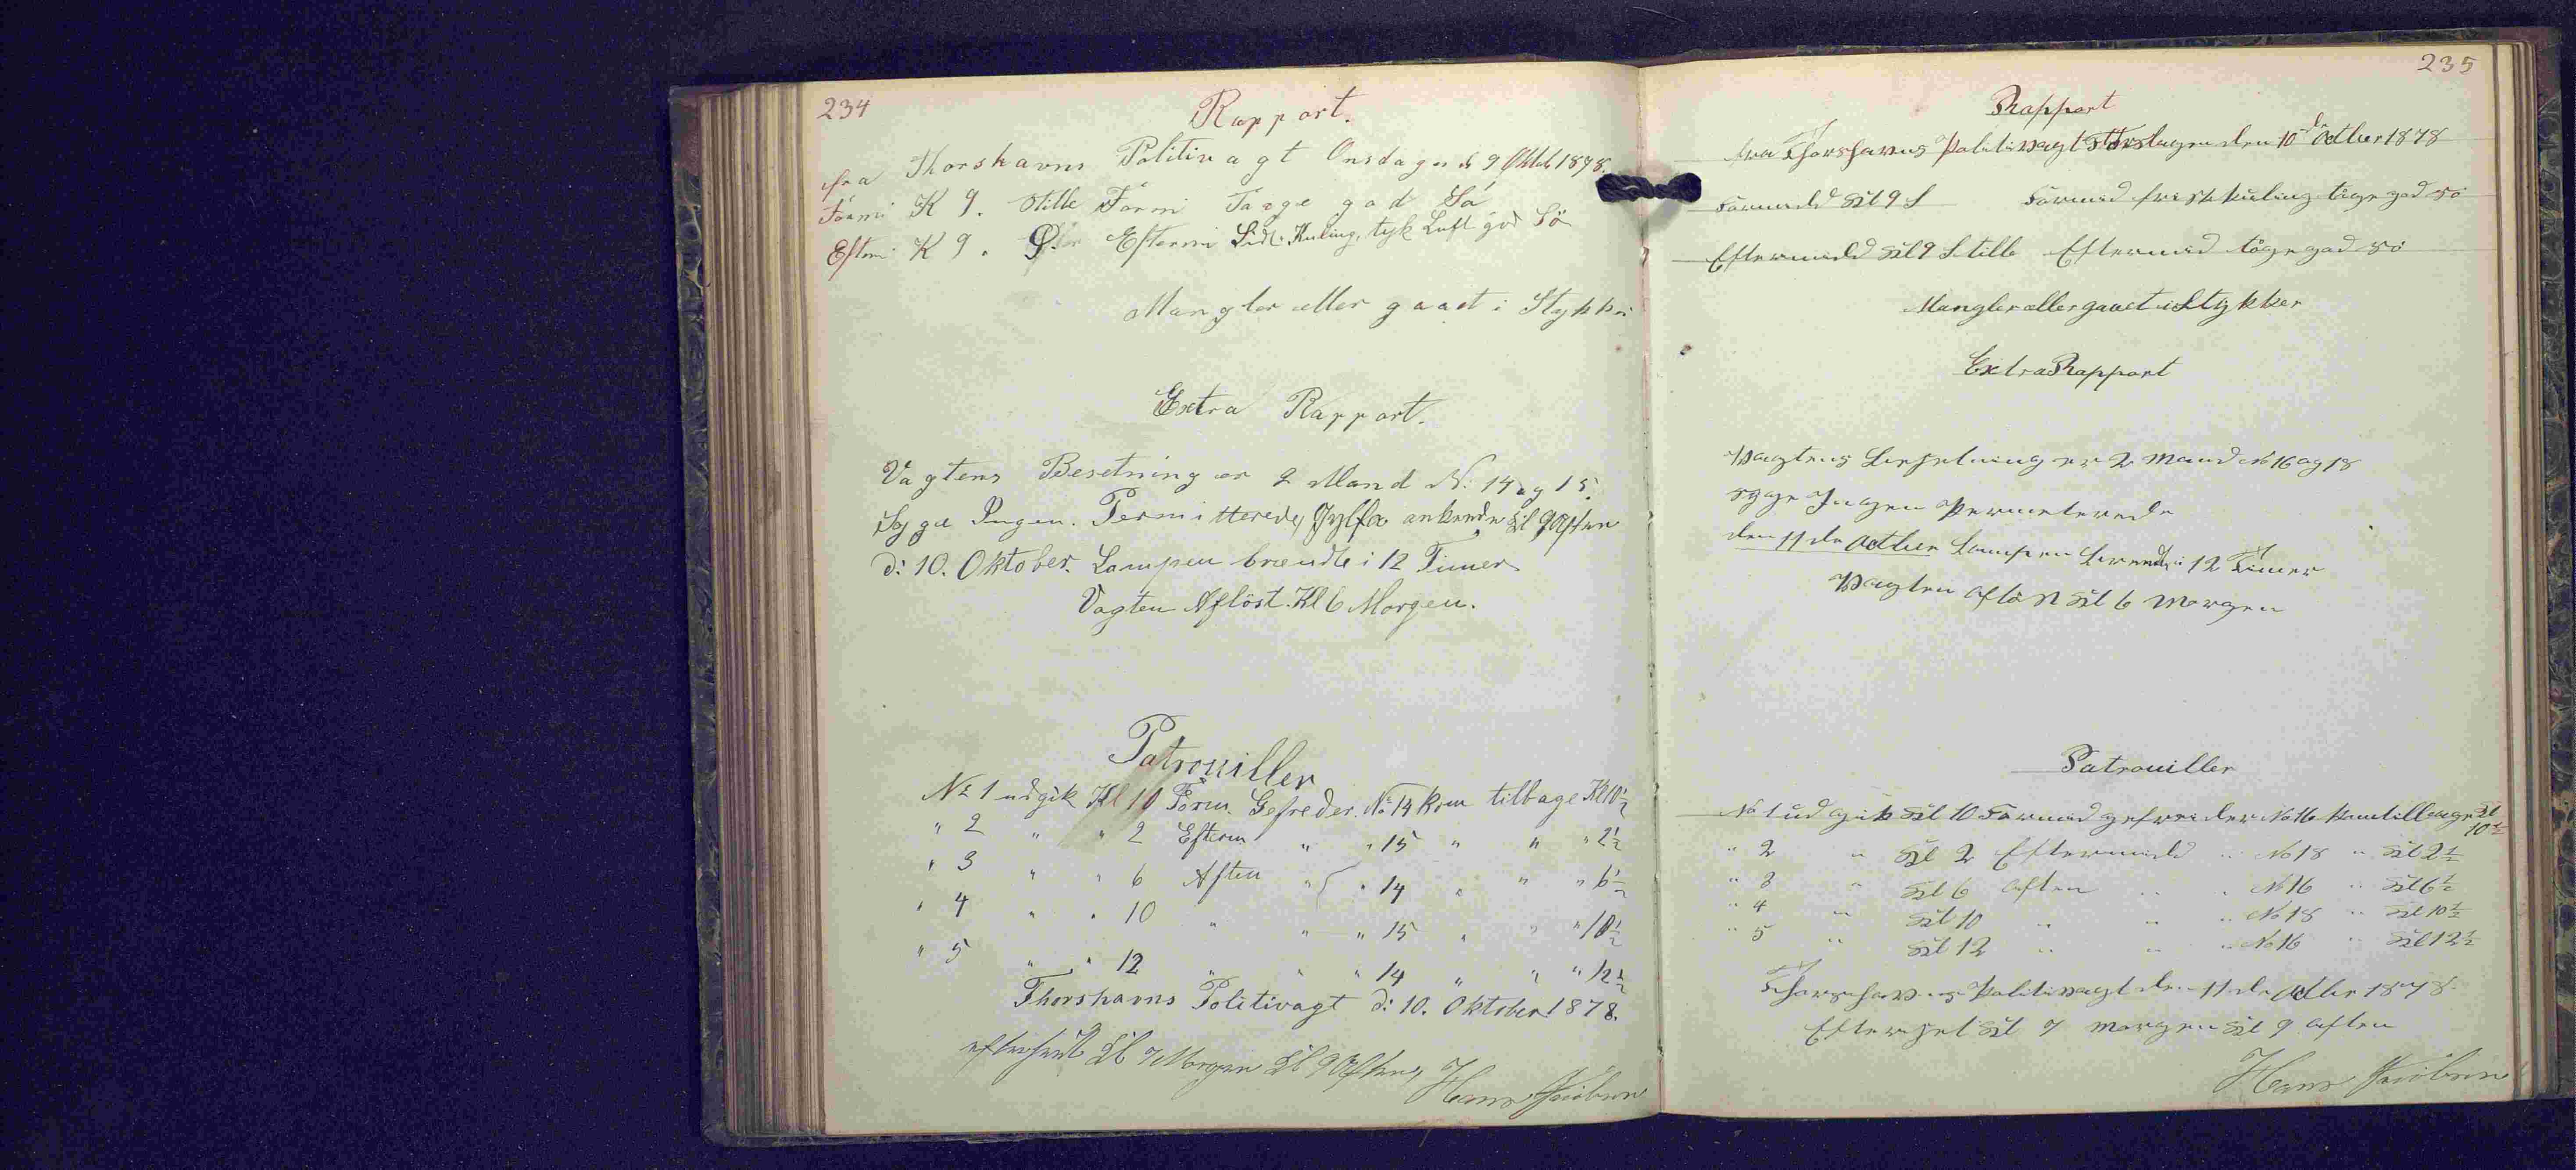 234
Rapport.
fra Thorshavns Politivagt Onsdagen d. 9 Oktob 1878.
Formi K 9. Stille Formi Taage god Sö
Eftmi K 9. Eftermi Lidt Kuling, tyk Luft god Sö
Mangler eller gaaet i Stykker
Extra Rapport.
Vagtens Besetning er 2 Mand N: 14 og 15.
Syge Ingen. Permitterede, Jylfa ankrede Kl 9 Aften
d: 10. Oktober. Lampen brændte i 12 Timer
Vagten Aflöst. Kl 6 Morgen.
Patrouiller
No 1 udgik Kl 10 Form. Gefreder. No 14 kom tilbage Kl 10½
" 2 " " 2 Efterm " " 15 " " " 2½
" 3 " " 6 Aften " " 14 " " " 6½
" 4 " " 10 " " " 15 " " " 10½
" 5 " " 12 " " " 14 " " " 12½
Thorshavns Politivagt d: 10. Oktober 1878.
efterseet Kl 7 Morgen Kl 9 Aften, Hans Jacobsen
235
Rapport
fra Thorshavns Politivagt Torsdagen den 10de Octber 1878
Formidd Kl 9 S Formid frisk kuling tåge god sö
Eftermidd Kl 9 Stille Eftermid tåge god sö
Mangler eller gaaet i Stykker
Extra Rapport
Vagtens besetning er 2 Mand No 16 og 18
syge Ingen Permeterede
den 11de Octber Lampen brendte i 12 Timer
Vagten aflöst Kl 6 Morgen
Patrouiller
No 1 udgik Kl 10 Formid gefreider No 16 kom tilbage Kl 10½
" 2 " Kl 2 Eftermidd " No 18 " Kl 2½
" 3 " Kl 6 aften " " No 16 " Kl 6½
" 4 " Kl 10 " " " No 18 " Kl 10½
" 5 " Kl 12 " " " No 16 " Kl 12½
Thorshavns Politivagt den 11de Octber 1878.
Efterset Kl 7 morgen Kl 9 aften
Hans Jacobsen